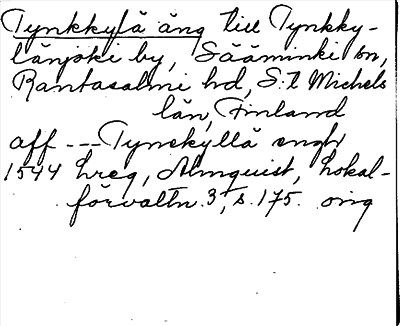 Tynkkylä äng till Tynkky-
länjoki by, Sääminki sn,
Rantasalmi hd, S:t Michels
län, Finland
aff --- Tynckyllä engh
1544 hreg, Almquist, Lokal-
förvaltn. 3, s. 175. orig